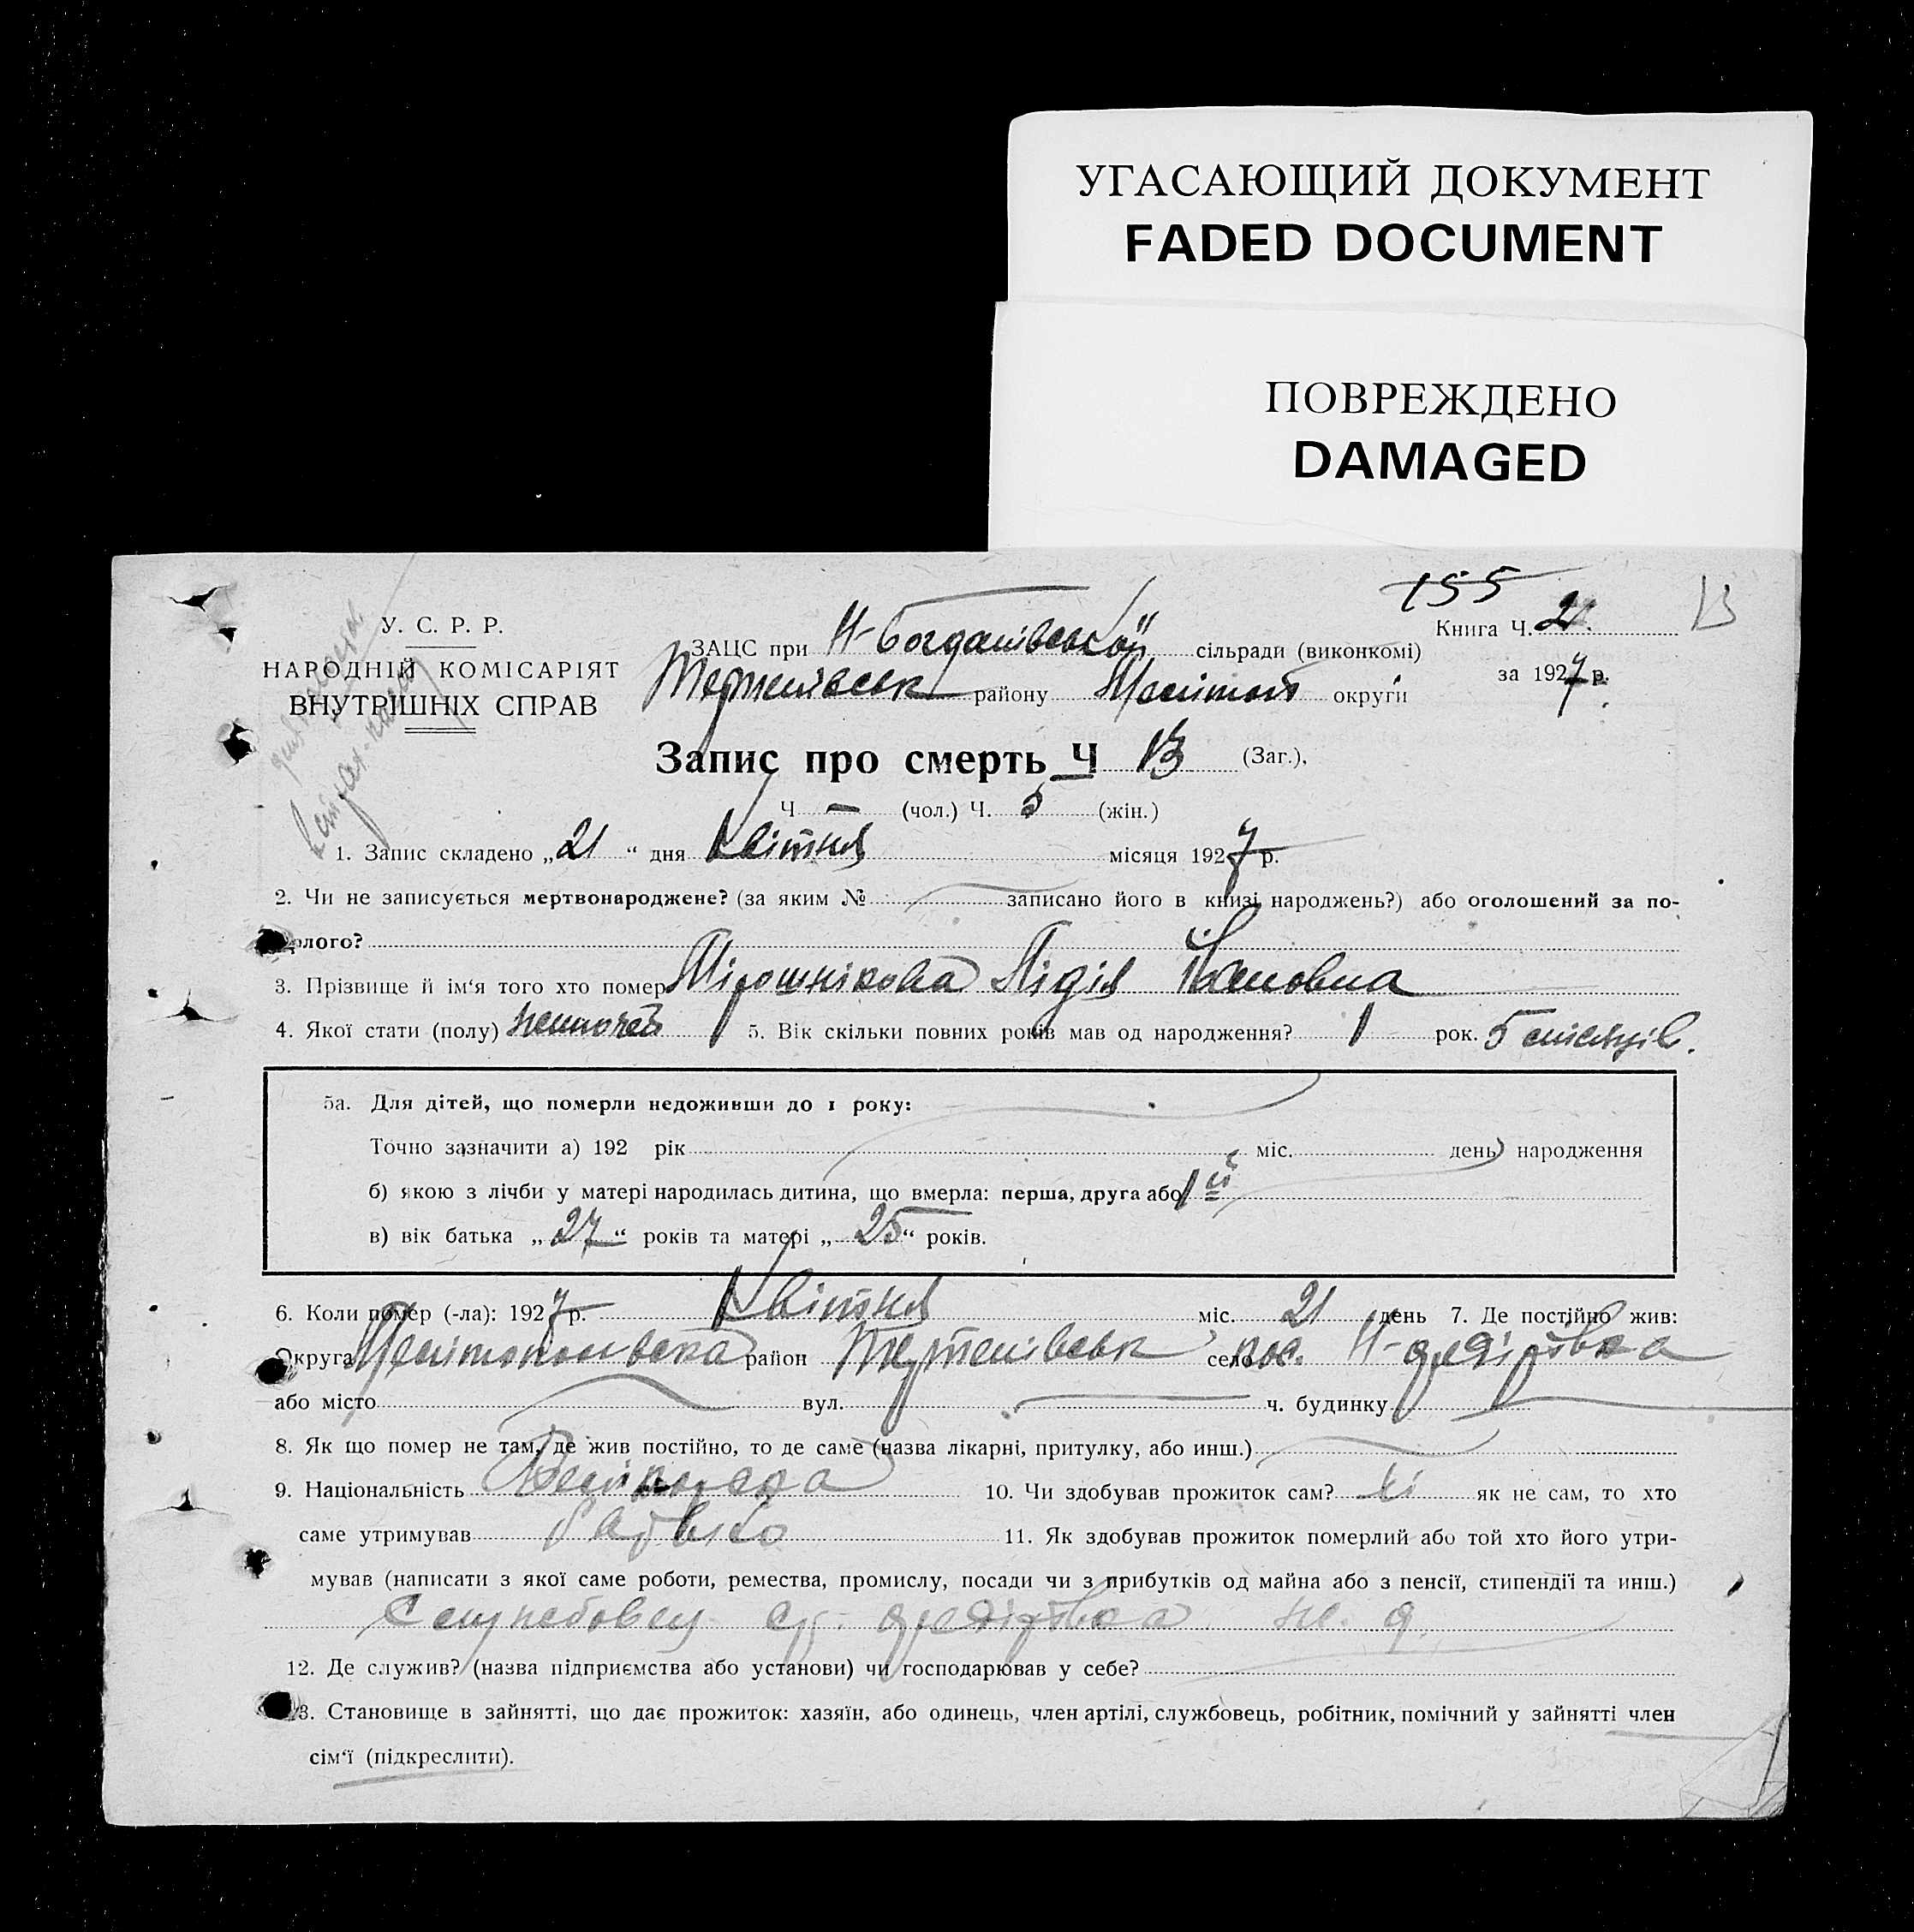 УГАСАЮЩИЙ ДОКУМЕНТ
FADED DOCUMENT
ПОВРЕЖДЕНО
DAMAGED
155
Книга Ч. 2 13
У. С. Р. Р.
НАРОДНІЙ КОМІСАРІЯТ
ВНУТРІШНІХ СПРАВ
ЗАЦС при Н-Богданівській сільради (виконкомі)
за 1927 р.
району округи
Запис про смерть Ч 13 (Заг.),
Ч — (чол.) Ч. 5 (жін.)
1. Запис складено „21“ дня Квітня місяця 1927 р.
2. Чи не записується мертвонароджене? (за яким № записано його в книзі народжень?) або оголошений за по-
лого?
3. Прізвище й ім‘я того хто помер Мірошнікова Лідія Івановна
4. Якої стати (полу) 5. Вік скільки повних років мав од народження? 1 рок. 5 місяців.
5а. Для дітей, що померли недоживши до 1 року:
Точно зазначити а) 192 рік міс. день народження
б) якою з лічби у матері народилась дитина, що вмерла: перша, друга або 1й
в) вік батька „27“ років та матері „25“ років.
6. Коли помер (-ла): 1927 р. Квітня міс. 21 день 7. Де постійно жив:
Округа район село
або місто вул. ч. будинку
8. Як що помер не там, де жив постійно, то де саме (назва лікарні, притулку, або инш.)
9. Національність 10. Чи здобував прожиток сам? ні як не сам, то хто
саме утримував батько 11. Як здобував прожиток померлий або той хто його утри-
мував (написати з якої саме роботи, ремества, промислу, посади чи з прибутків од майна або з пенсії, стипендії та инш.)
12. Де служив? (назва підприємства або установи) чи господарював у себе?
13. Становище в зайнятті, що дає прожиток: хазяїн, або одинець, член артілі, службовець, робітник, помічний у зайнятті член
сім‘ї (підкреслити).